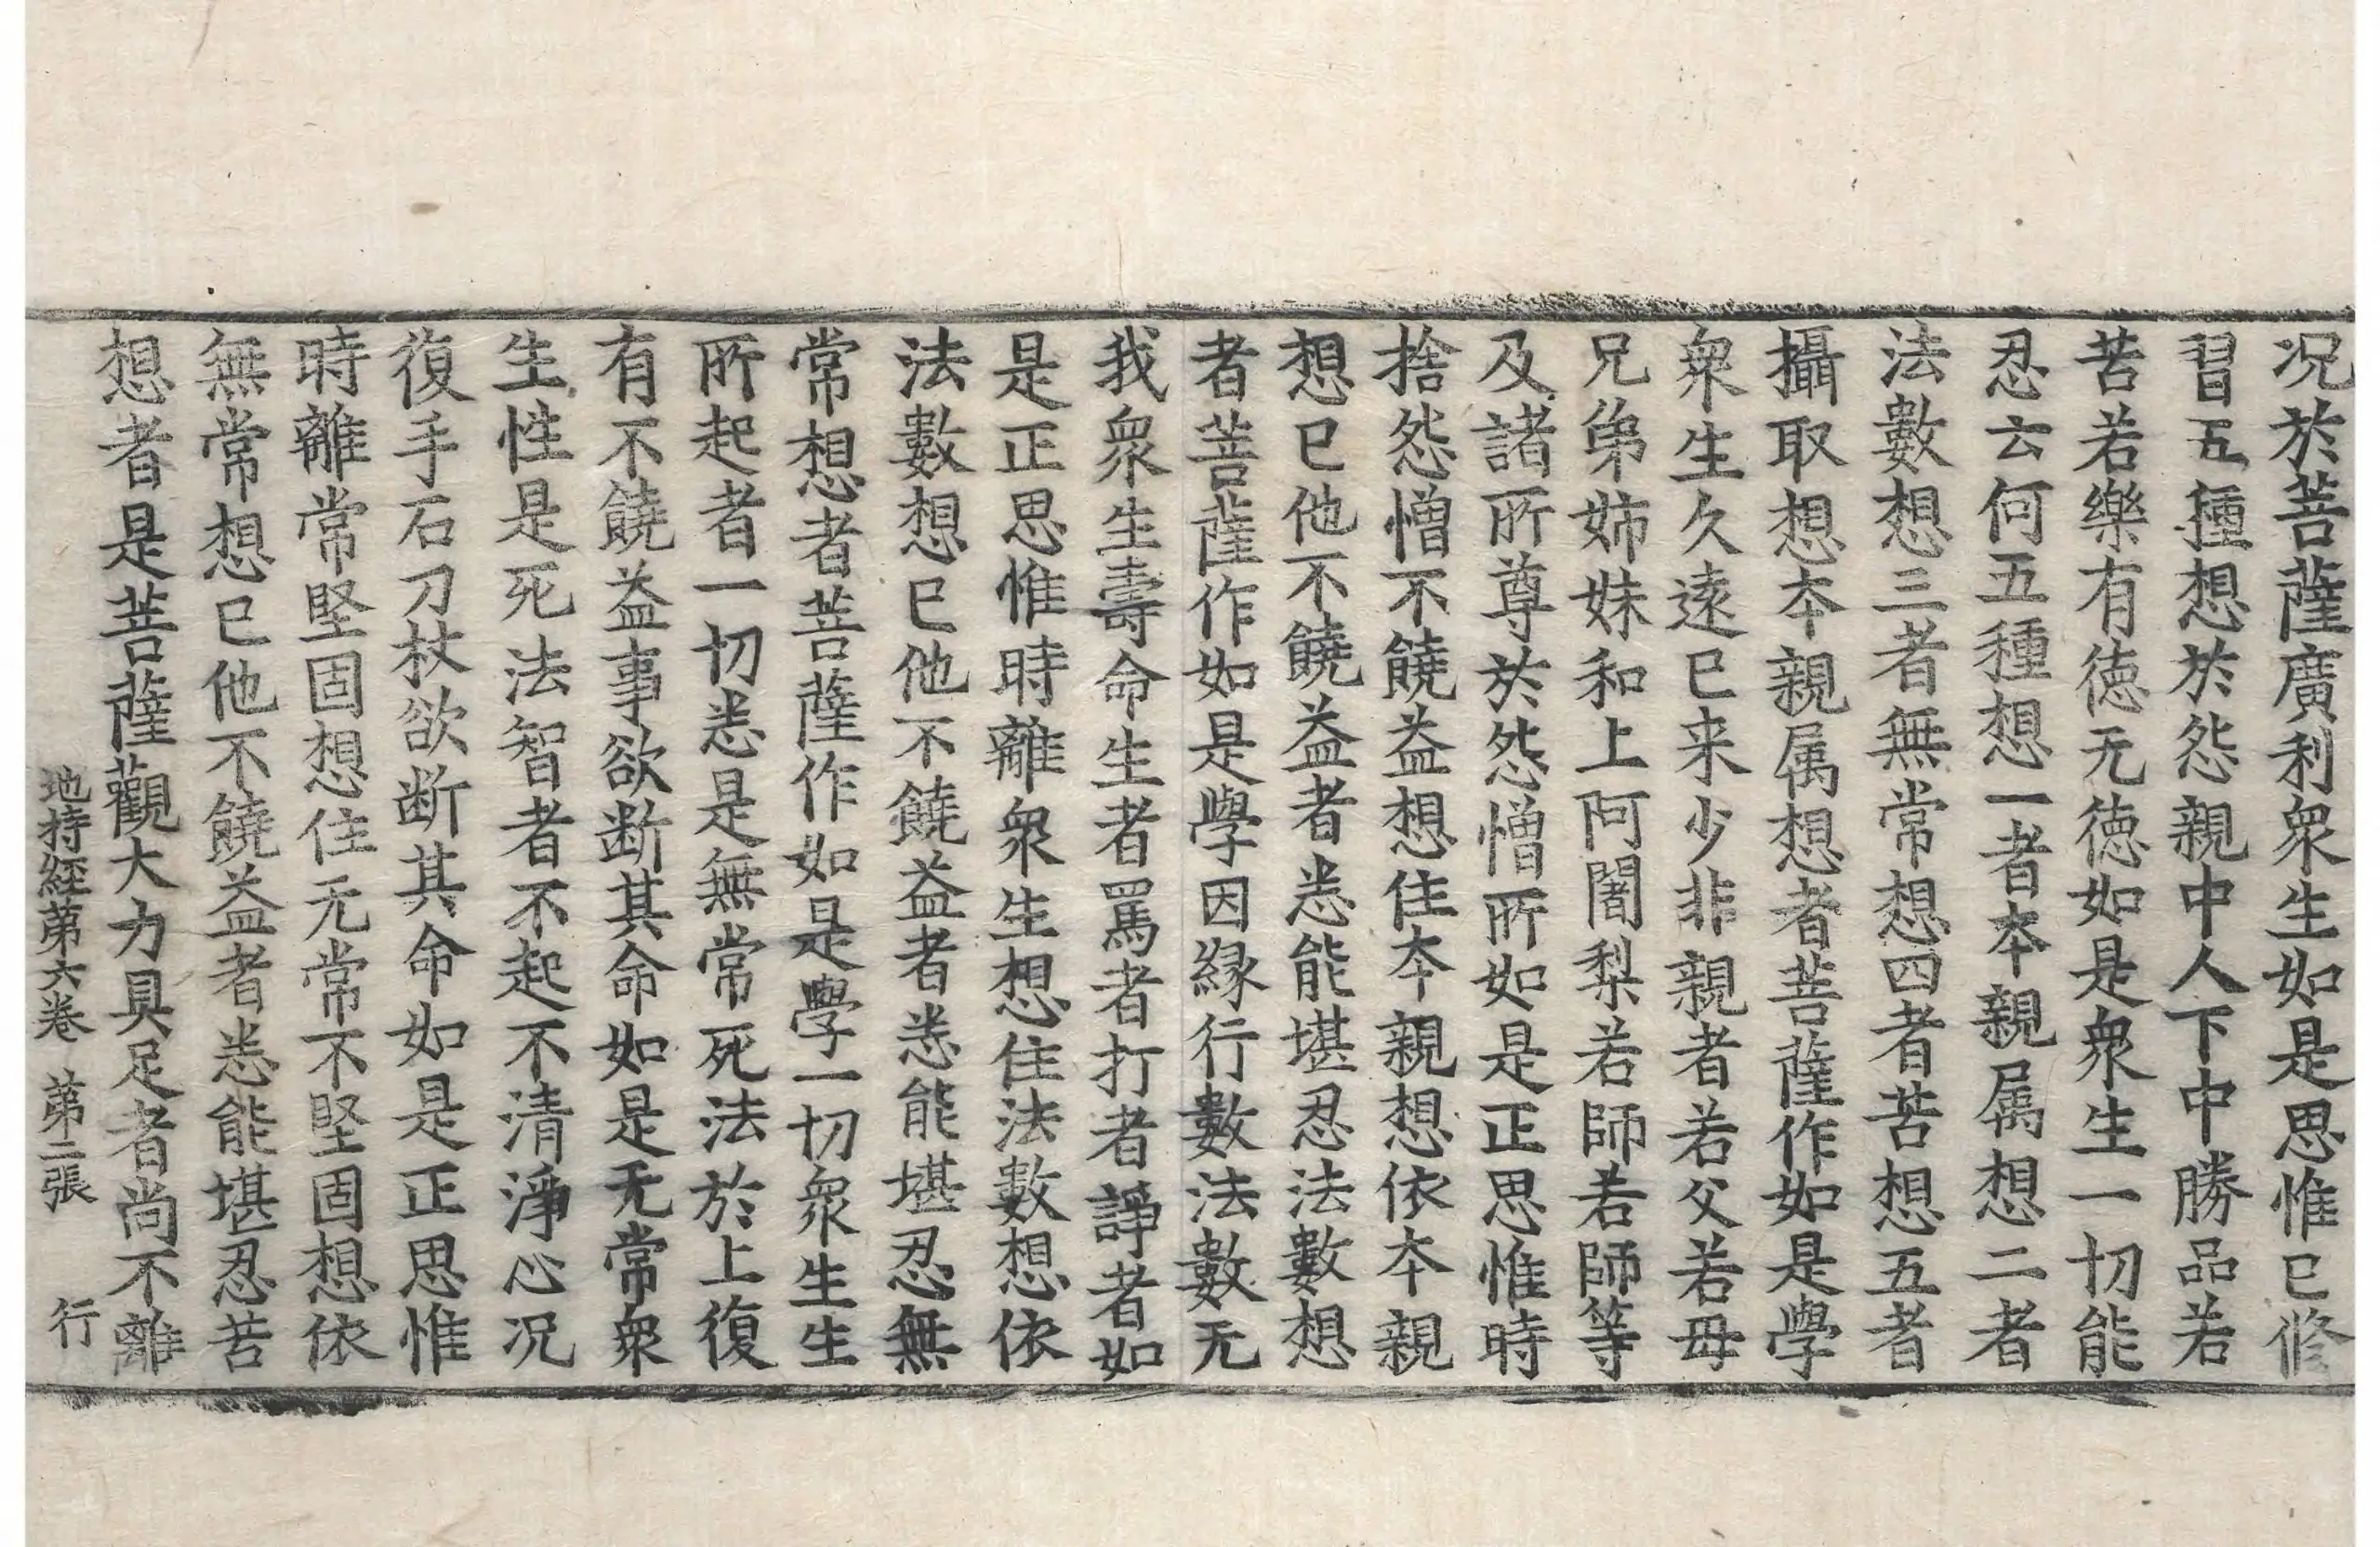 况於菩薩廣利衆生如是思惟已修
習五種想於怨親中人下中勝品若
苦若樂有徳无徳如是衆生一切能
忍云何五種想一者本親属想二者
法數想三者無常想四者苦想五者
攝取想本親属想者菩薩作如是學
衆生久逺已来少非親者若父若母
兄弟姉妹和上阿闍梨若師若師等
及諸所尊於怨憎所如是正思惟時
捨怨憎不饒益想住本親想依本親
想已他不饒益者悉能堪忍法數想
者菩薩作如是學因縁行數法數无
我衆生壽命生者罵者打者諍者如
是正思惟時離衆生想住法數想依
法數想已他不饒益者悉能堪忍無
常想者菩薩作如是學一切衆生生
所起者一切悉是無常死法於上復
有不饒益事欲断其命如是无常衆
生性是死法智者不起不清淨心况
復手石刀杖欲断其命如是正思惟
時離常堅固想住无常不堅固想依
無常想已他不饒益者悉能堪忍苦
想者是菩薩觀大力具足者尚不離
地持經第六卷 第二張 行